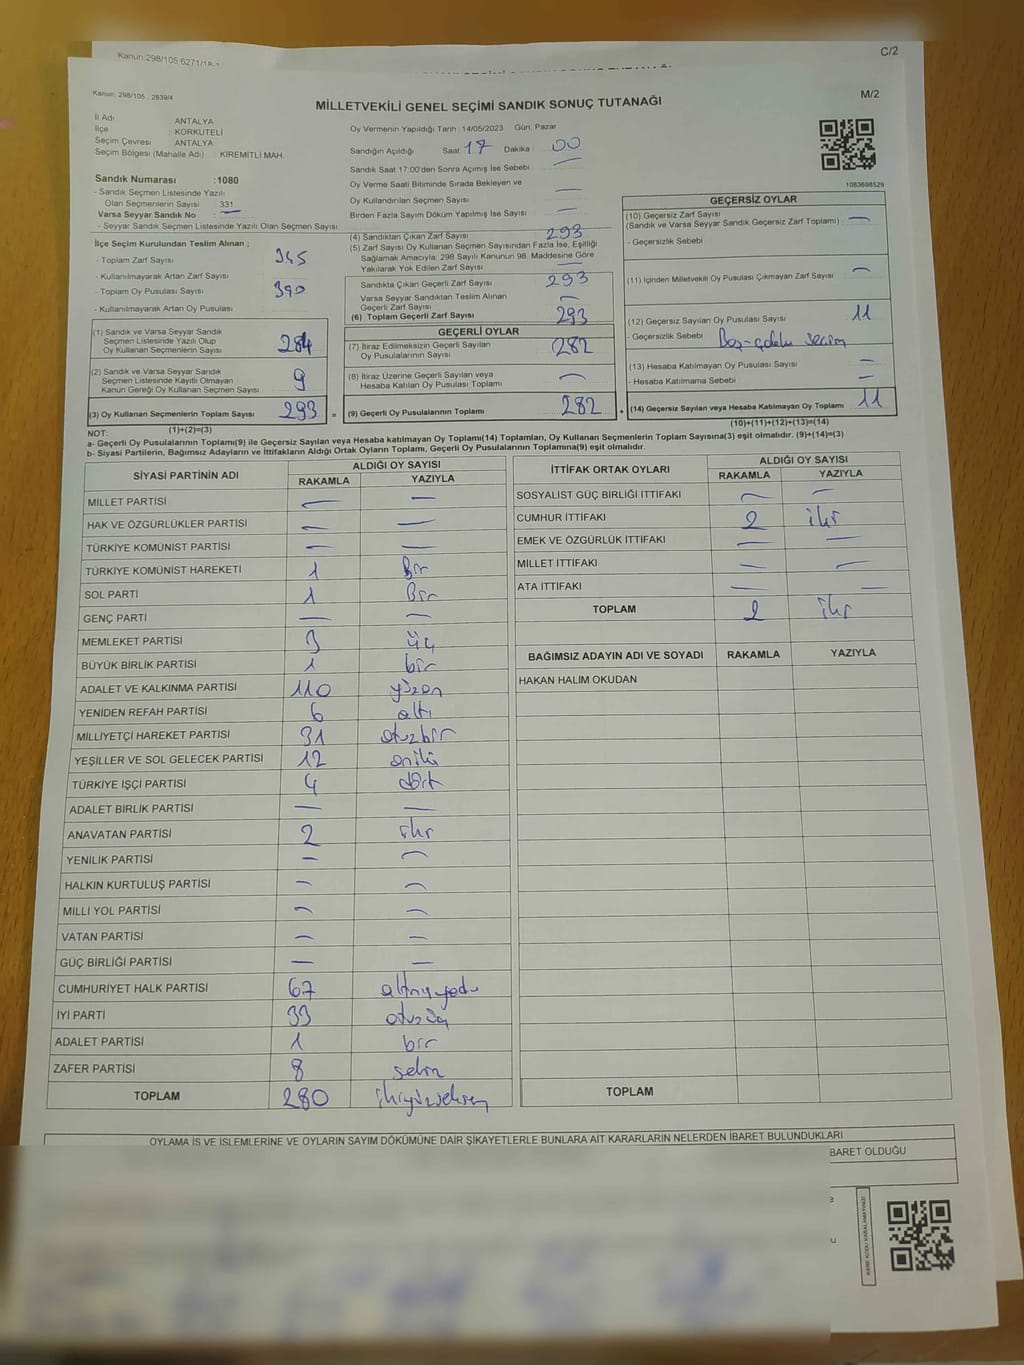 Kanun:298/105 6271/1A-1
C/2
Kanun: 298/105 , 2839/4
M/2
MİLLETVEKİLİ GENEL SEÇİMİ SANDIK SONUÇ TUTANAĞI
İl Adı ANTALYA
İlçe KORKUTELİ
Seçim Çevresi ANTALYA
Seçim Bölgesi (Mahalle Adı) KİREMİTLİ MAH.
Sandık Numarası :1080
- Sandık Seçmen Listesinde Yazılı
Olan Seçmenlerin Sayısı : 331
Varsa Seyyar Sandık No : —
- Seyyar Sandık Seçmen Listesinde Yazılı Olan Seçmen Sayısı
Oy Vermenin Yapıldığı Tarih :14/05/2023 Gün: Pazar
Sandığın Açıldığı Saat 17 Dakika 00
Sandık Saat 17:00'den Sonra Açımış İse Sebebi —
Oy Verme Saati Bitiminde Sırada Bekleyen ve
Oy Kullandırılan Seçmen Sayısı —
Birden Fazla Sayım Döküm Yapılmış İse Sayısı —
1083698529
İlçe Seçim Kurulundan Teslim Alınan ;
- Toplam Zarf Sayısı 345
- Kullanılmayarak Artan Zarf Sayısı
- Toplam Oy Pusulası Sayısı 390
- Kullanılmayarak Artan Oy Pusulası
(1) Sandık ve Varsa Seyyar Sandık
Seçmen Listesinde Yazılı Olup
Oy Kullanan Seçmenlerin Sayısı 284
(2) Sandık ve Varsa Seyyar Sandık
Seçmen Listesinde Kayıtlı Olmayan
Kanun Gereği Oy Kullanan Seçmen Sayısı 9
(3) Oy Kullanan Seçmenlerin Toplam Sayısı 293 =
(1)+(2)=(3)
(4) Sandıktan Çıkan Zarf Sayısı 293
(5) Zarf Sayısı Oy Kullanan Seçmen Sayısından Fazla İse, Eşitliği
Sağlamak Amacıyla; 298 Sayılı Kanunun 98. Maddesine Göre
Yakılarak Yok Edilen Zarf Sayısı —
Sandıkta Çıkan Geçerli Zarf Sayısı 293
Varsa Seyyar Sandıktan Teslim Alınan
Geçerli Zarf Sayısı —
(6) Toplam Geçerli Zarf Sayısı 293
GEÇERLİ OYLAR
(7) İtiraz Edilmeksizin Geçerli Sayılan
Oy Pusulalarının Sayısı 282
(8) İtiraz Üzerine Geçerli Sayılan veya
Hesaba Katılan Oy Pusulası Toplamı —
(9) Geçerli Oy Pusulalarının Toplamı 282 +
GEÇERSİZ OYLAR
(10) Geçersiz Zarf Sayısı
(Sandık ve Varsa Seyyar Sandık Geçersiz Zarf Toplamı) —
- Geçersizlik Sebebi
(11) İçinden Milletvekili Oy Pusulası Çıkmayan Zarf Sayısı —
(12) Geçersiz Sayılan Oy Pusulası Sayısı 11
- Geçersizlik Sebebi
(13) Hesaba Katılmayan Oy Pusulası Sayısı —
- Hesaba Katılmama Sebebi —
(14) Geçersiz Sayılan veya Hesaba Katılmayan Oy Toplamı 11
(10)+(11)+(12)+(13)=(14)
NOT:
a- Geçerli Oy Pusulalarının Toplamı(9) ile Geçersiz Sayılan veya Hesaba katılmayan Oy Toplamı(14) Toplamları, Oy Kullanan Seçmenlerin Toplam Sayısına(3) eşit olmalıdır. (9)+(14)=(3)
b- Siyasi Partilerin, Bağımsız Adayların ve İttifakların Aldığı Ortak Oyların Toplamı, Geçerli Oy Pusulalarının Toplamına(9) eşit olmalıdır.
SİYASİ PARTİNİN ADI ALDIĞI OY SAYISI
RAKAMLA YAZIYLA
MİLLET PARTİSİ — —
HAK VE ÖZGÜRLÜKLER PARTİSİ — —
TÜRKİYE KOMÜNİST PARTİSİ — —
TÜRKİYE KOMÜNİST HAREKETİ 1 Bir
SOL PARTİ 1 Bir
GENÇ PARTİ — —
MEMLEKET PARTİSİ 3 üç
BÜYÜK BİRLİK PARTİSİ 1 bir
ADALET VE KALKINMA PARTİSİ 110 yüzon
YENİDEN REFAH PARTİSİ 6 altı
MİLLİYETÇİ HAREKET PARTİSİ 31 otuzbir
YEŞİLLER VE SOL GELECEK PARTİSİ 12 oniki
TÜRKİYE İŞÇİ PARTİSİ 4 dört
ADALET BİRLİK PARTİSİ — —
ANAVATAN PARTİSİ 2 iki
YENİLİK PARTİSİ — —
HALKIN KURTULUŞ PARTİSİ — —
MİLLİ YOL PARTİSİ — —
VATAN PARTİSİ — —
GÜÇ BİRLİĞİ PARTİSİ — —
CUMHURİYET HALK PARTİSİ 67 altmışyedi
İYİ PARTİ 33 otuzüç
ADALET PARTİSİ 1 bir
ZAFER PARTİSİ 8 sekiz
TOPLAM 280 ikiyüzseksen
İTTİFAK ORTAK OYLARI ALDIĞI OY SAYISI
RAKAMLA YAZIYLA
SOSYALİST GÜÇ BİRLİĞİ İTTİFAKI — —
CUMHUR İTTİFAKI 2 iki
EMEK VE ÖZGÜRLÜK İTTİFAKI — —
MİLLET İTTİFAKI — —
ATA İTTİFAKI — —
TOPLAM 2 iki
BAĞIMSIZ ADAYIN ADI VE SOYADI RAKAMLA YAZIYLA
HAKAN HALİM OKUDAN
TOPLAM
OYLAMA İŞ VE İŞLEMLERİNE VE OYLARIN SAYIM DÖKÜMÜNE DAİR ŞİKAYETLERLE BUNLARA AİT KARARLARIN NELERDEN İBARET BULUNDUKLARI
BARET OLDUĞU